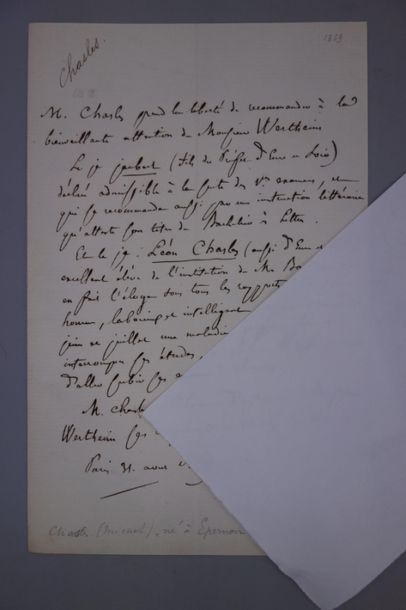 Chasles.
1859
M. Chasles prend la liberté de recommander à la
bienveillante attention de Monsieur Wertheim
Le je jaubert (fils du Préfet d'Eure et Loir)
déclaré admissible à la suite des examens, et
qui se recommande aussi par une instruction littéraire
qu'atteste son titre de Bachelier ès Lettres.
Et le je : Léon Chasles (aussi d'Eure et
excellent élève de l'institution de Mr
en fait l'éloge sous tous les rapports
laborieux et intelligent
juin et juillet une maladie
interrompre ses études
d'aller subir ses
M. Chasles
Wertheim ses
Paris 31 aout
Chasles (Michel), né à Epernon